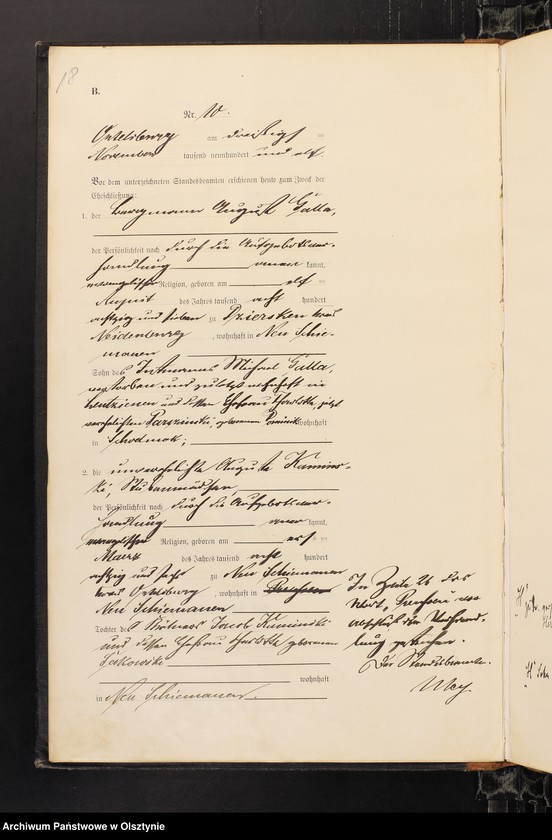 18
B.
Nr. 10.
Ortelsburg am dreißigsten
November tausend neunhundert und elf.
Vor dem unterzeichneten Standesbeamten erschienen heute zum Zweck der
Eheschließung:
1. der Bergmann August Galla,
der Persönlichkeit nach durch die Aufgebotsver-
handlung kannt,
evangelischer Religion, geboren am elf ten
August des Jahres tausend acht hundert
achtzig und sieben zu Dziersken Kreis
Neidenburg, wohnhaft in Neu Schie-
manen
Sohn des Instmanns Michael Galla,
verstorben und zuletzt wohnhaft in
und dessen Ehefrau Charlotte, jetzt
verehelichten geborenen wohnhaft
in Schodmak;
2. die unverehelichte Auguste Kamins-
ki, Stubenmädchen,
der Persönlichkeit nach durch die Aufgebotsver-
handlung kannt,
evangelischer Religion, geboren am ten
Maerz des Jahres tausend acht hundert
achtzig und sechs zu Neu Schiemanen
Kreis Ortelsburg, wohnhaft in
Neu Schiemanen
Tochter des Jacob Kaminski
und dessen Ehefrau Charlotte geborenen
wohnhaft
in Neu Schiemanen.
In Zeile 26 das
Wort
gestrichen.
Der Standesbeamte.
Archiwum Państwowe w Olsztynie